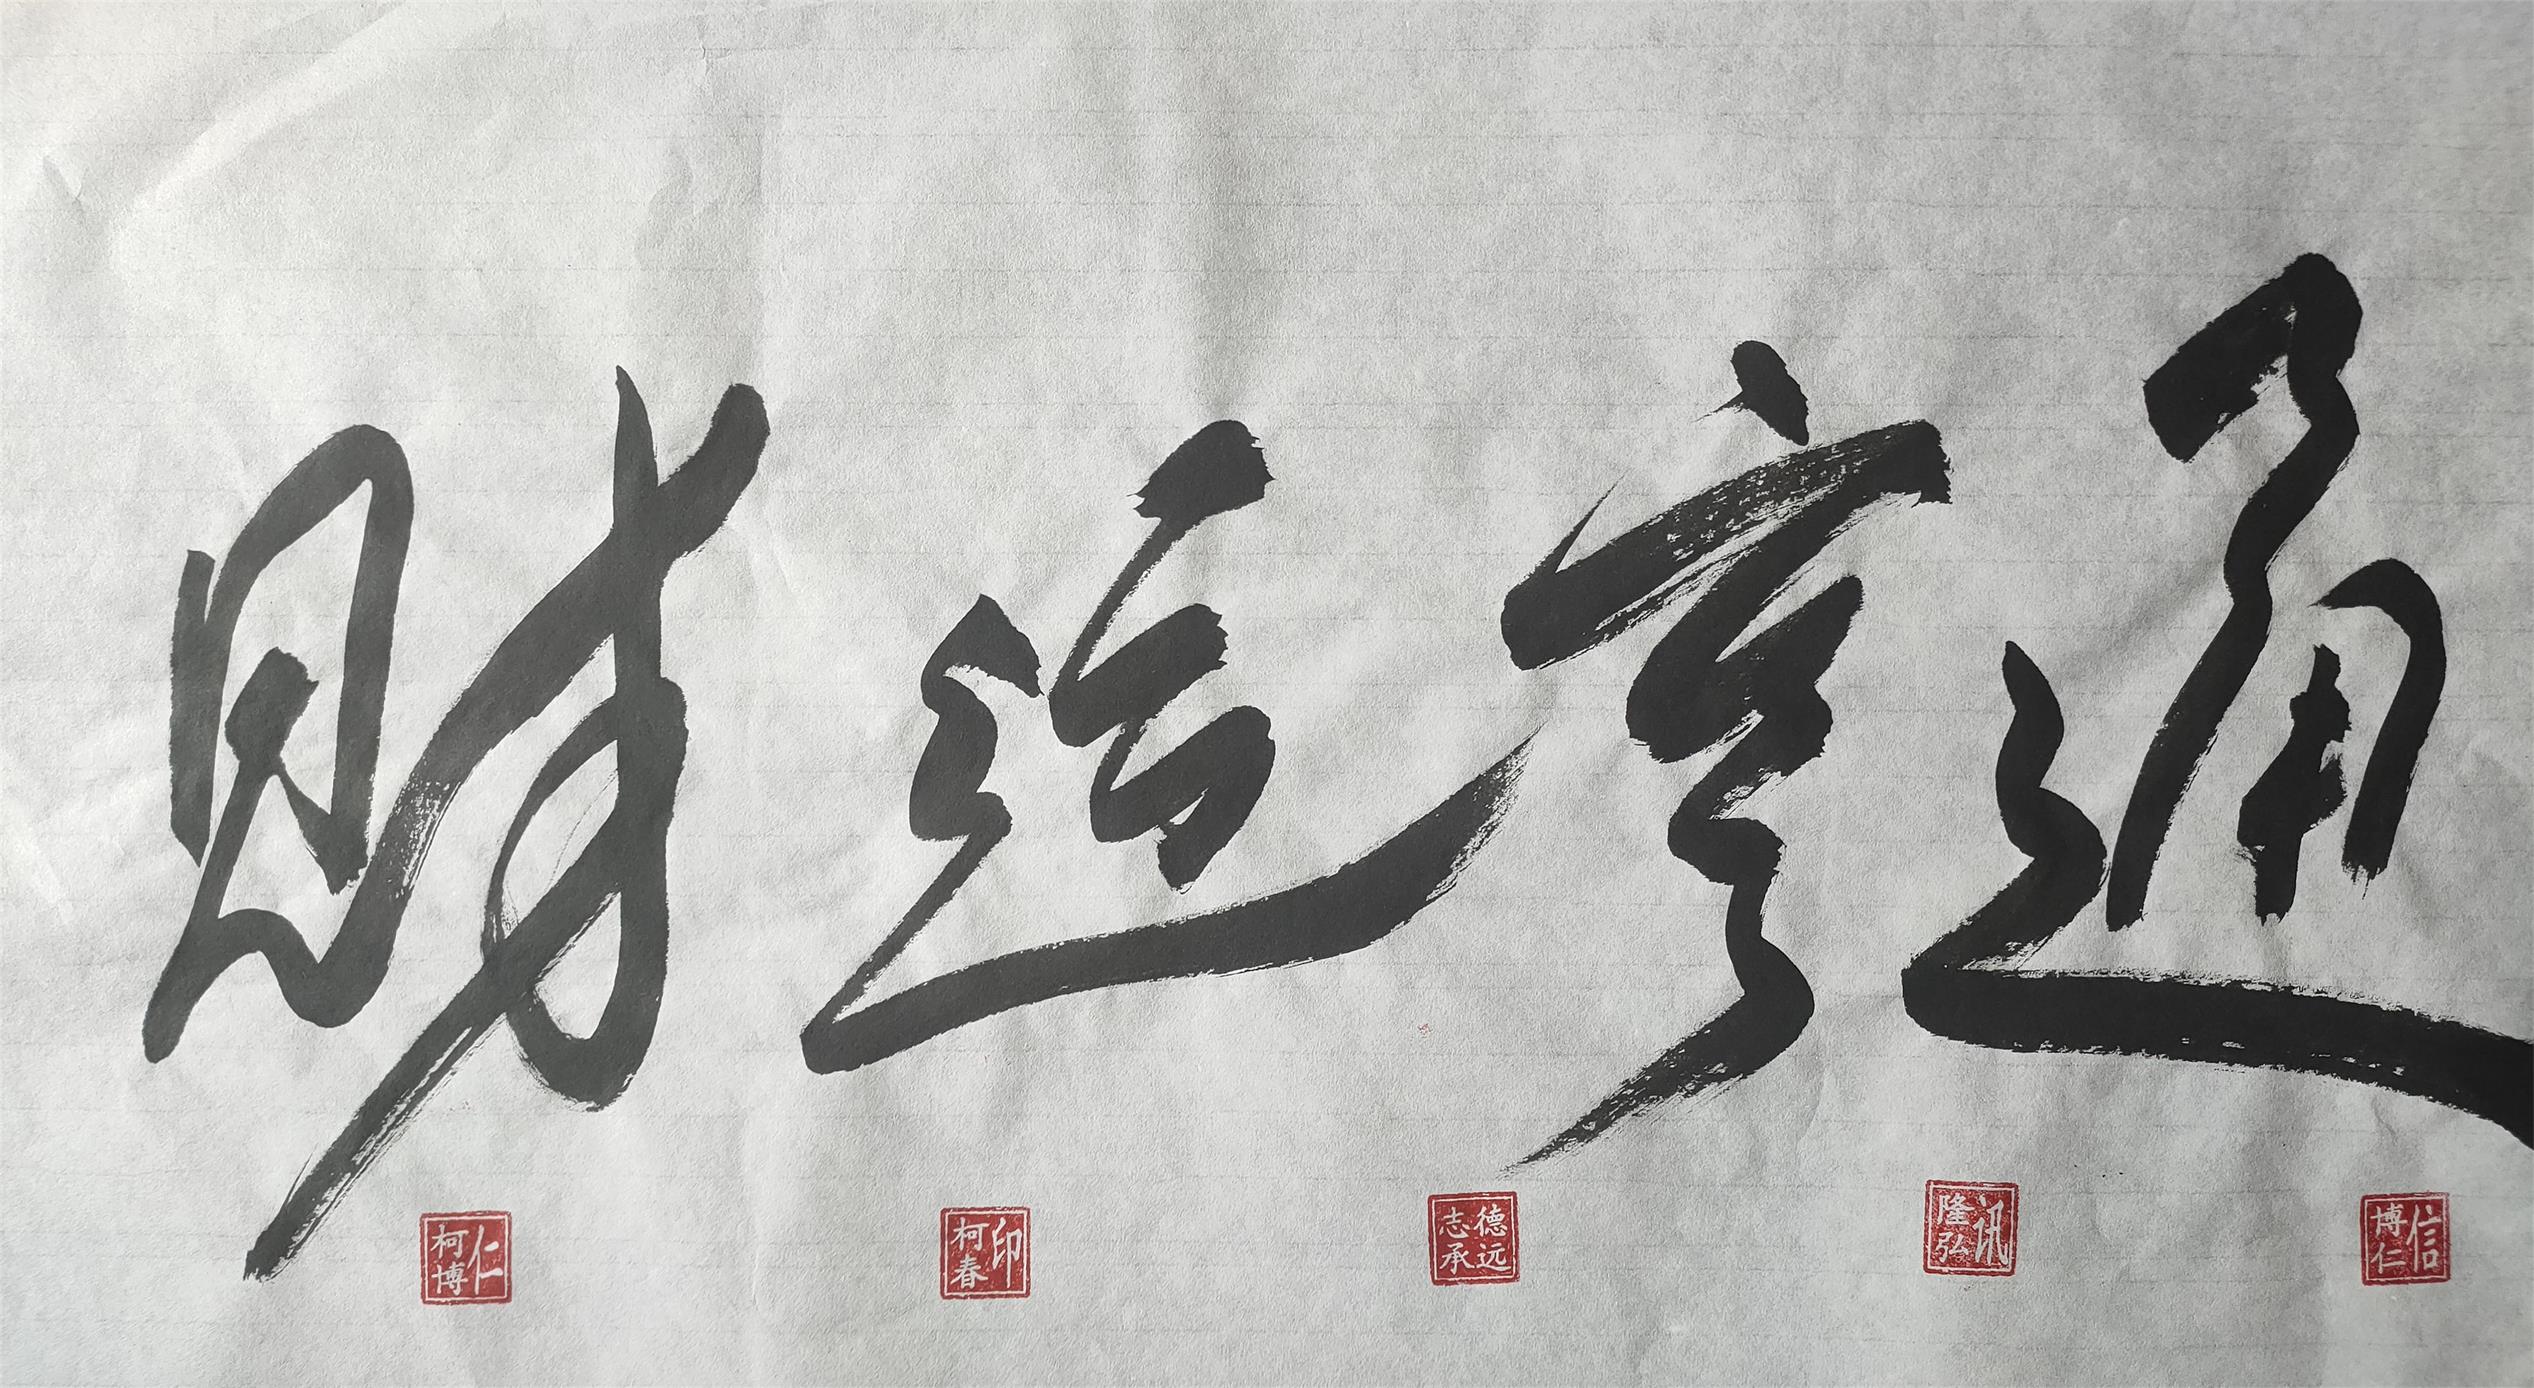 财运亨通
柯博仁
柯春印
志承德远
隆弘讯
博仁信